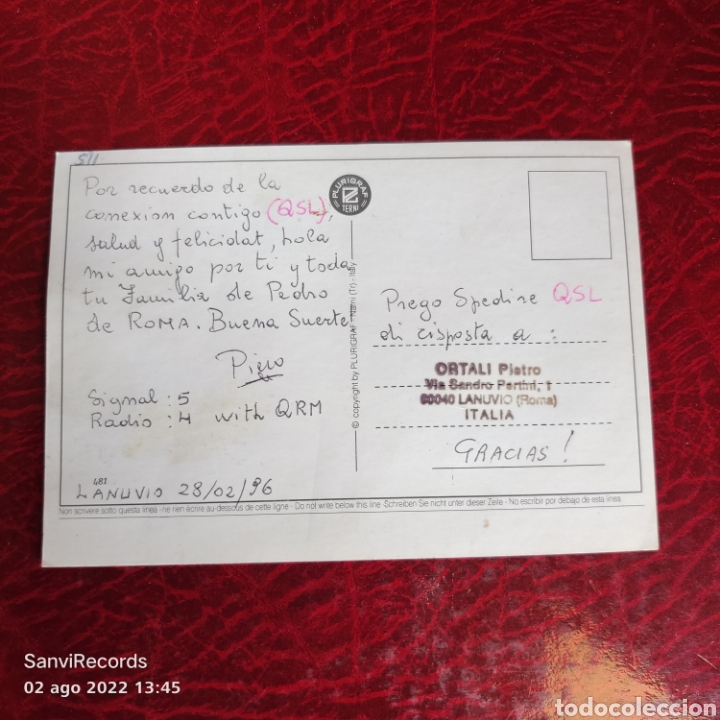 511
Por recuerdo de la
conexion contigo (QSL),
salud y felicidat, hola
mi amigo por ti y toda
tu Familia de Pedro
de ROMA. Buena Suerte
Piero
Signal : 5
Radio : 4 with QRM
481
LANUVIO 28/02/96
PLURIGRAF
TERNI
© copyright by PLURIGRAF - Narni (Tr) - Italy
Prego Spedire QSL
di risposta a :
ORTALI Pietro
Via Sandro Pertini, 1
00040 LANUVIO (Roma)
ITALIA
GRACIAS!
Non scrivere sotto questa linea - ne rien écrire au-dessous de cette ligne - Do not write below this line - Schreiben Sie nicht unter dieser Zeile - No escribir por debajo de esta linea
SanviRecords
02 ago 2022 13:45
todocoleccion